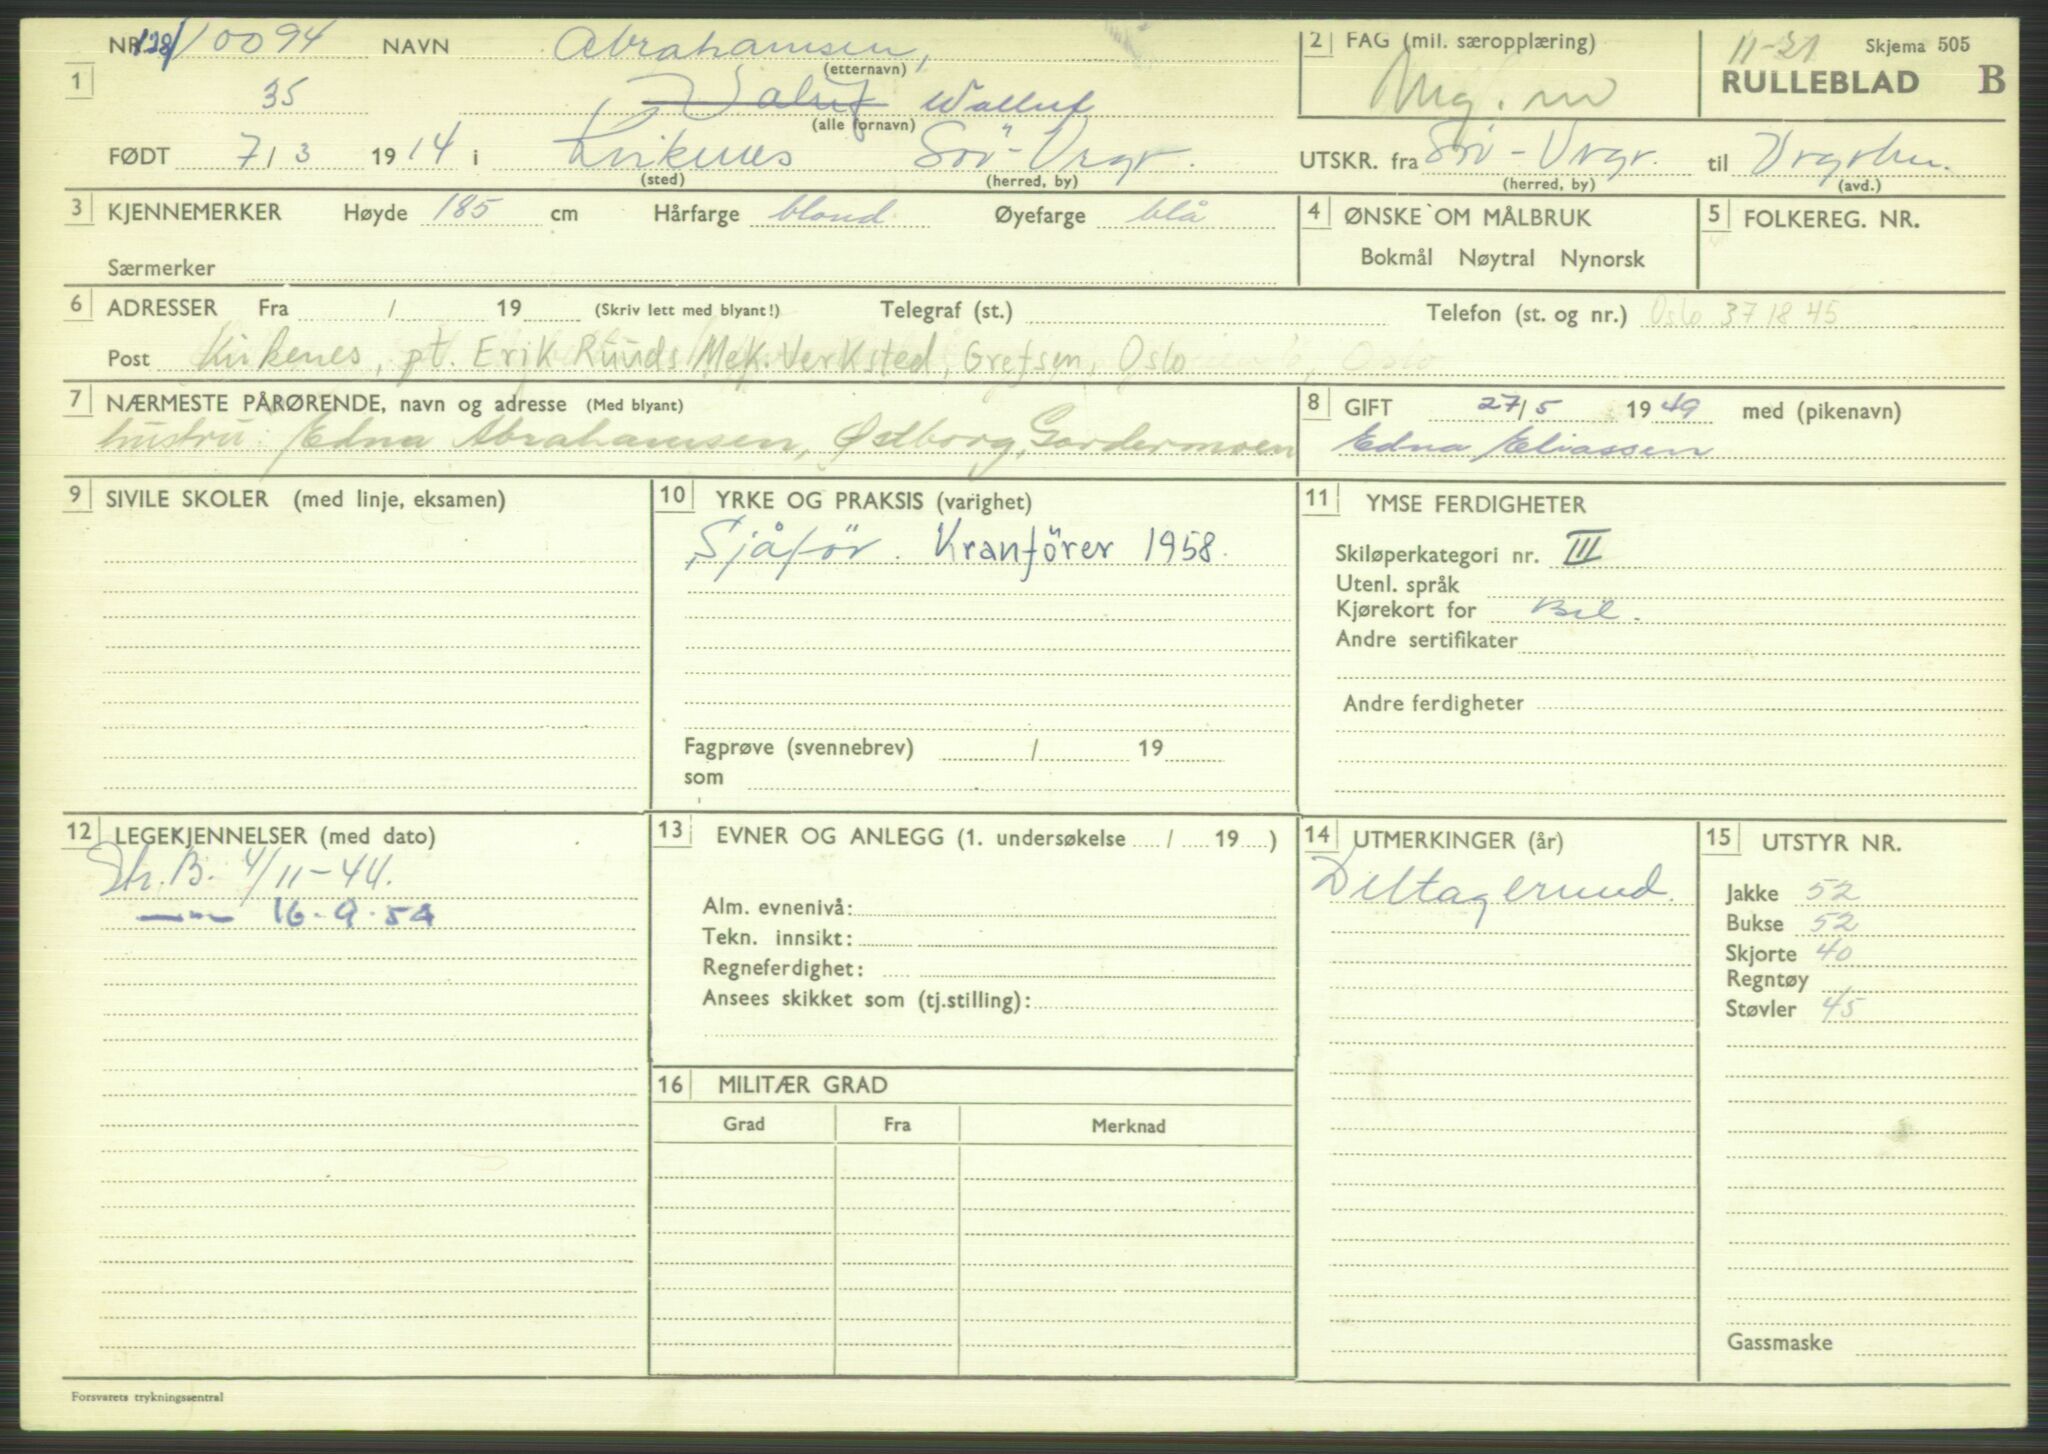 NR. 128/10094 NAVN Abrahamsen, 2 FAG (mil. særopplæring) 11-21 Skjema 505
(etternavn)
1 35 Valuf Walluf Mg. m RULLEBLAD B
(alle fornavn)
FØDT 7/3 1914 i Kirkenes Sör-Vrgr. UTSKR. fra Sör-Vrgr. til Vrgrhu.
(sted) (herred, by) (herred, by) (avd.)
3 KJENNEMERKER Høyde 185 cm Hårfarge blond Øyefarge blå 4 ØNSKE OM MÅLBRUK 5 FOLKEREG. NR.
Bokmål Nøytral Nynorsk
Særmerker
6 ADRESSER Fra / 19 (Skriv lett med blyant!) Telegraf (st.) Telefon (st. og nr.) Oslo 37 18 45
Post Kirkenes, pt. Erik Ruuds Mek. Verksted, Grefsen, Oslo
7 NÆRMESTE PÅRØRENDE, navn og adresse (Med blyant) 8 GIFT 27/5 1949 med (pikenavn)
hustru: Edna Abrahamsen, Østborg, Gardermoen Edna Eliassen
9 SIVILE SKOLER (med linje, eksamen) 10 YRKE OG PRAKSIS (varighet) 11 YMSE FERDIGHETER
Sjåför. Kranförer 1958.
Skiløperkategori nr. III
Utenl. språk
Kjørekort for Bil.
Andre sertifikater
Andre ferdigheter
Fagprøve (svennebrev) / 19
som
12 LEGEKJENNELSER (med dato) 13 EVNER OG ANLEGG (1. undersøkelse / 19 ) 14 UTMERKINGER (år) 15 UTSTYR NR.
Str. B. 4/11-44. Deltagermed.
—"— 16.9.54
Jakke 52
Alm. evnenivå:
Bukse 52
Tekn. innsikt:
Skjorte 40
Regneferdighet:
Regntøy
Ansees skikket som (tj.stilling):
Støvler 45
16 MILITÆR GRAD
Grad Fra Merknad
Gassmaske
Forsvarets trykningssentral